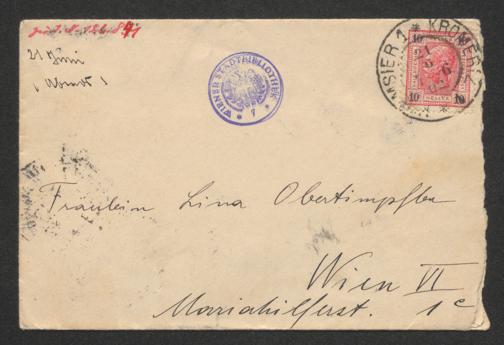 21 Juni
WIENER STADTBIBLIOTHEK
* 1 *
KREMSIER 1 * KROMĚŘÍŽ 1
10 10
10 HELLER 10
Fräulein Lina Obertimpfler
Wien VI
Mariahilferst. 1c